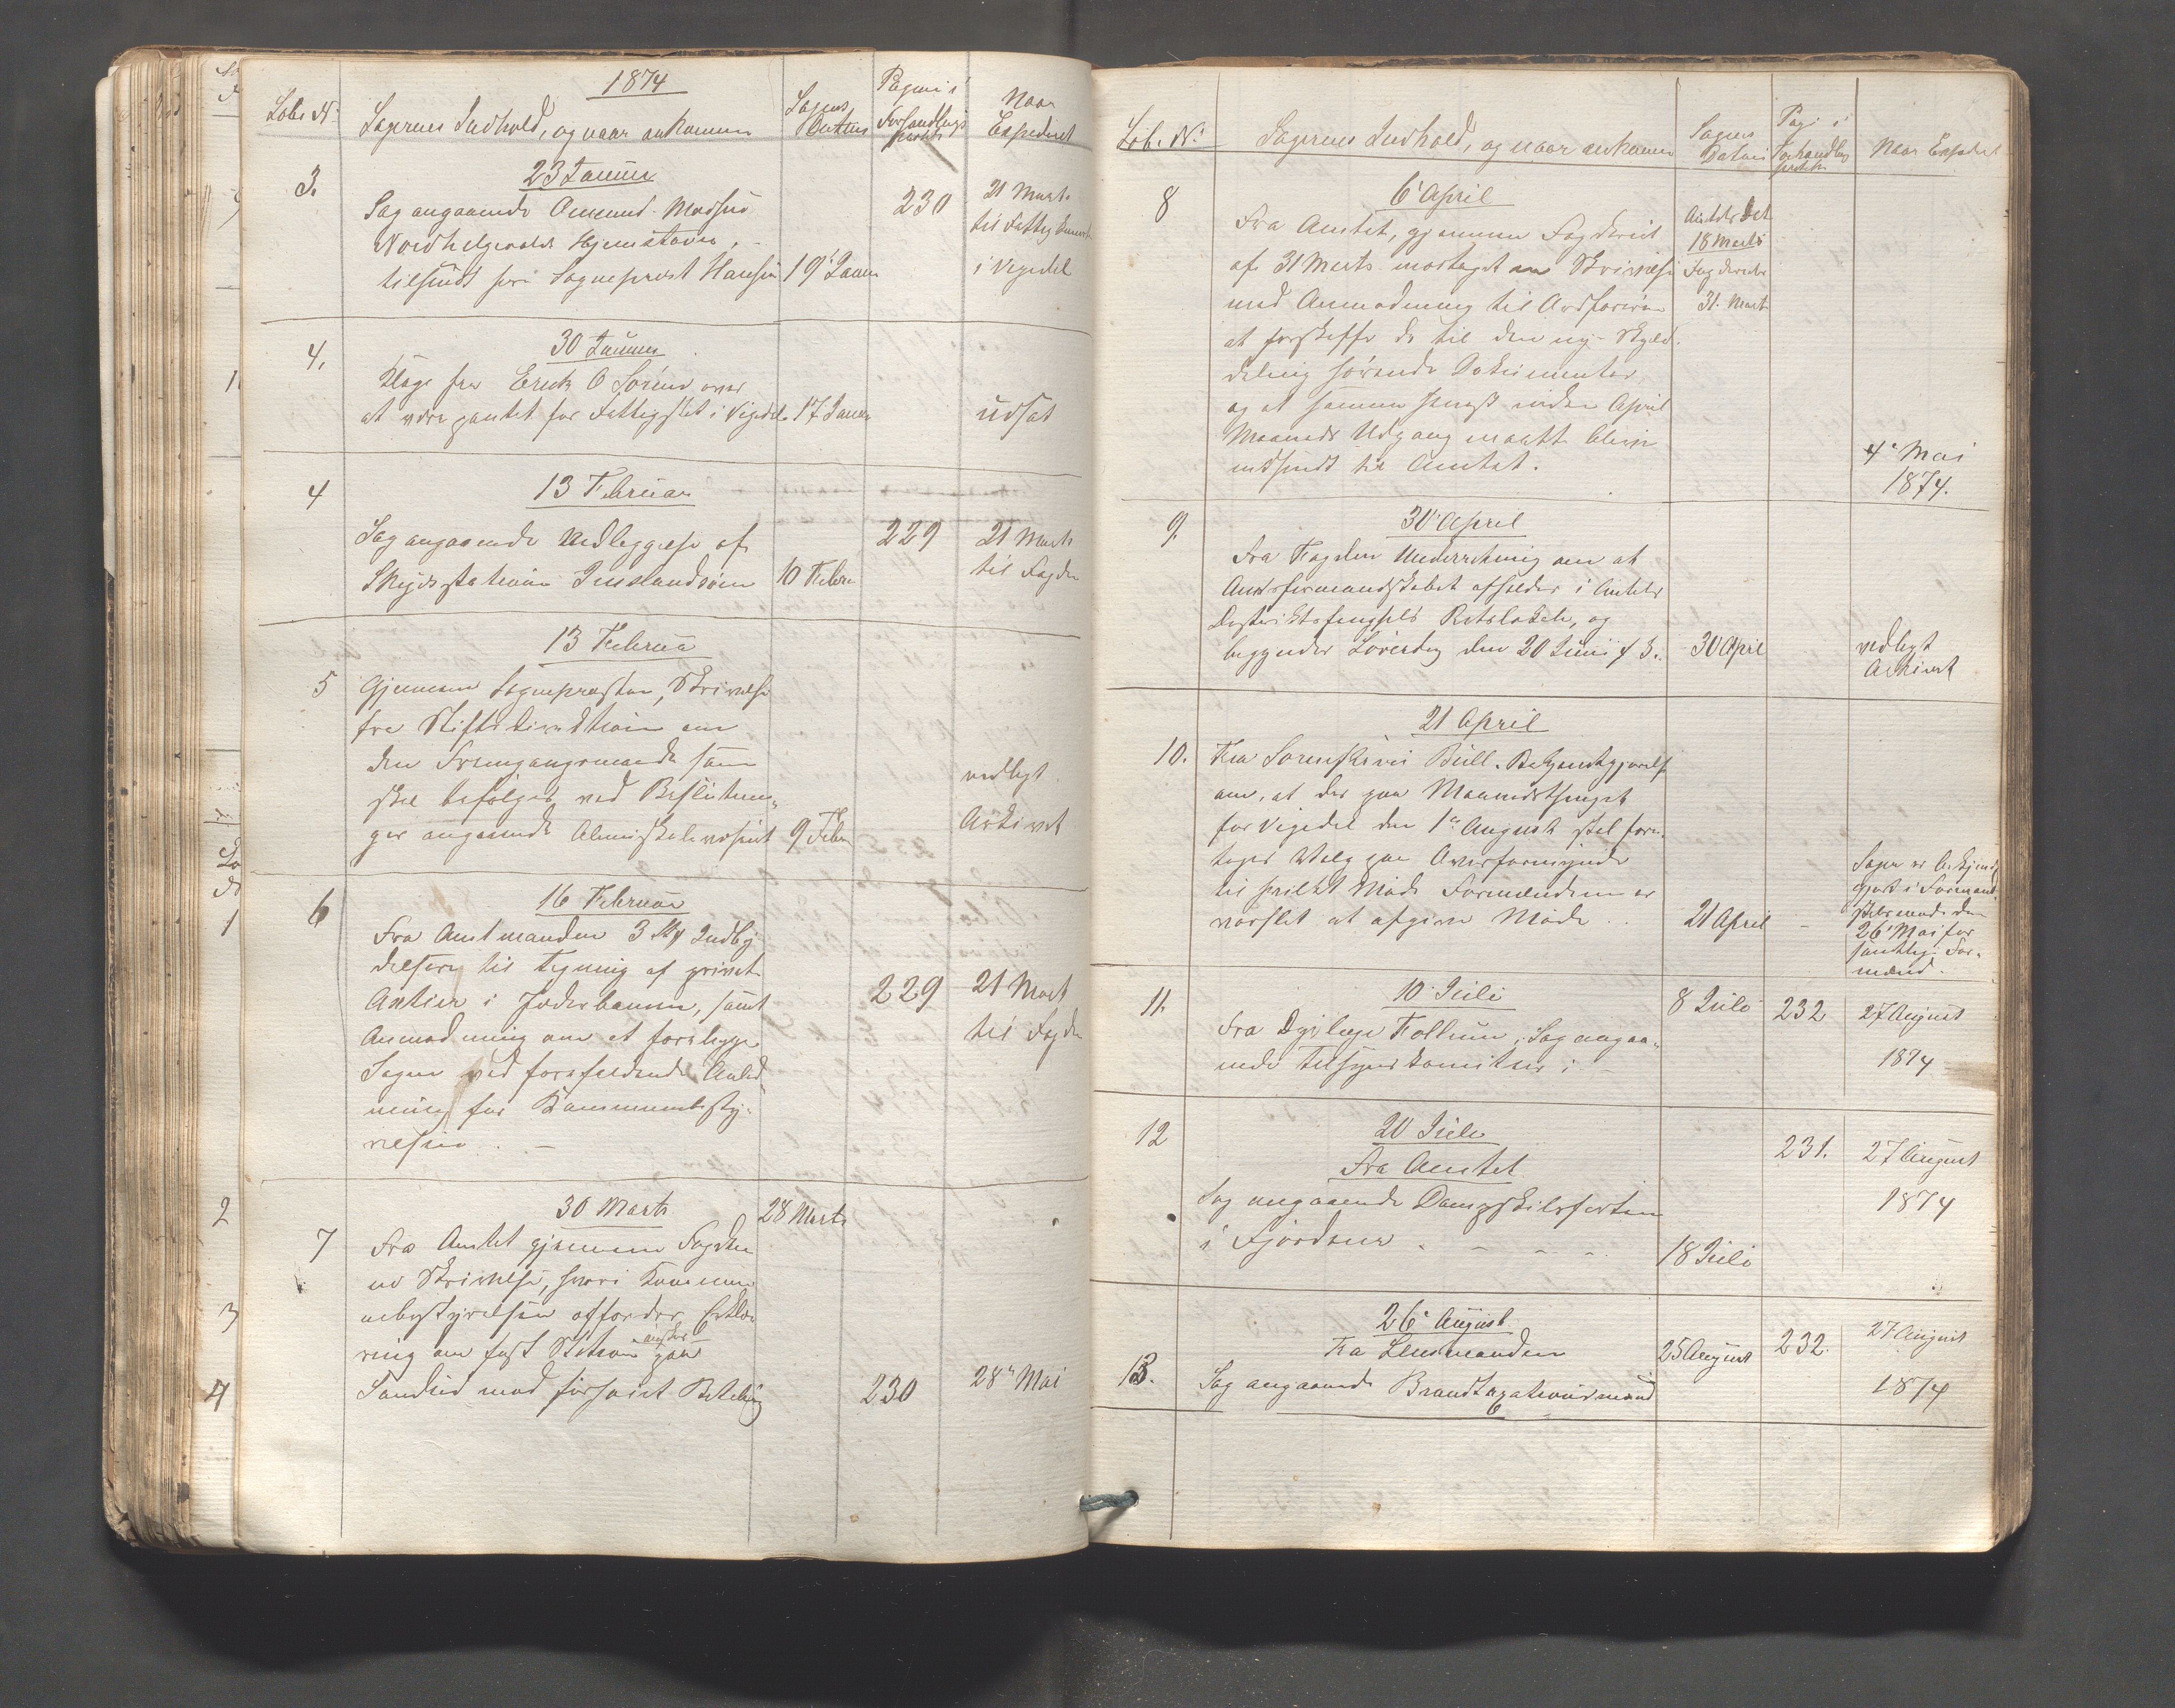 1874
Løbe N.
Sagernes Indhold, og naar ankommen
Sagens Datum
Pagina i Forhandlings
Naar Expederet
3.
23 Januar
Sag angaaende Amund Madsen
Nordhelgevolds Hjemstavn,
tilsendt fra Sognepræst Hansen
19 Januar
230
21 Marts
til Fattig
i Vigedal
4.
30 Januar
Klage fra Erick O over
at være pantet for Fattigskat i Vigedal
17 Januar
udsat
4
13 Februar
Sag angaaende Nedleggelse af
Skydsstationen Imslandsøen
10 Febru
229
21 Marts
til Fogden
13 Februar
5
Gjennem Sognepræsten, Skrivelse
fra Stiftsdirektionen om
den Fremgangsmaade som
skal befølges ved Beslutnin-
ger angaaende Almueskolevæsenet
9 Febr
vedlagt
Arkivet
6
16 Februar
Fra Amtmanden 3 Stk Indby
delser til Tegning af private
Aktier i Jæderbanen, samt
Anmodning om at forelegge
Sagen ved forefaldende Anled
ning for Kommunebesty-
relsen . –
229
21 Mart
til Fogden
7
30 Marts
28 Marts
Fra Amtet gjennem Fogden
en Skrivelse, hvori Kommu
nebestyrelsen affordres Erklæ
ring om fast Station paa
Sandeid mod forhøiet Betaling
230
28 Mai
Løb. N.
Sagernes Indhold, og naar ankommen
Sagens Datum
Pag. i Forhandlings protok
Naar Exped
8
6 April
Fra Amtet, gjennem Fogderiet
af 31 Marts modtaget en Skrivelse
med Anmodning til Ordføreren
at forskaffe de til den ny Skyld-
deling hørende Dokumenter
og at samme snarest inden April
Maaneds Udgang maatte blive
indsendt til Amtet.
Amtets Dat
18 Marts
Fogderiets
31. Mart
4 Mai
1874.
9.
30 April
Fra Fogden Underretning om at
Amtsformandskabet afholdes i Amtets
Distriktsfængsels Retslokale, og
begynder Løverdag den 20 Juni d. A.
30 April
vedlagt
Arkivet
21 April
10.
Fra Sorenskriver Bull. Bekjendtgjørelse
om, at der paa Maanedsthinget
for Vigedal den 1 August skal fore-
tages Valg paa Overformynder
til hvilket Møde Formændene er
varslet at afgive Møde . .
21 April
–
Sagen er bekjendt
gjort i Formand
skabsmøde den
26 Mai for
samtlige For-
mænd.
11.
10 Juli
Fra Dyrlæge Follum, Sag angaa-
ende Tilsynskomiteer i
8 Juli
232
27 August
1874
12
20 Juli
Fra Amtet
Sag angaaende Dampskibsfarten
i Fjordene . – – –
18 Juli
231.
27 August
1874
26 August
Fra Lensmanden
13.
Sag angaaende Brandtaxationsmænd
25 August
232.
27 August
1874